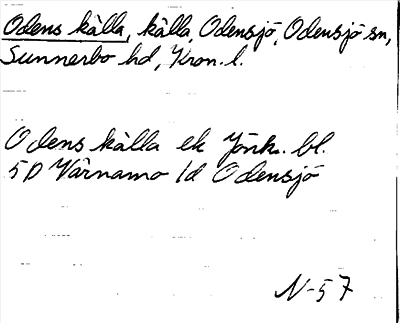 Odens källa, källa, Odensjö, Odensjö sn,
Sunnerbo hd, Kron. l.
Odens källa ek Jönk. bl.
5D Värnamo 1d Odensjö
N-57